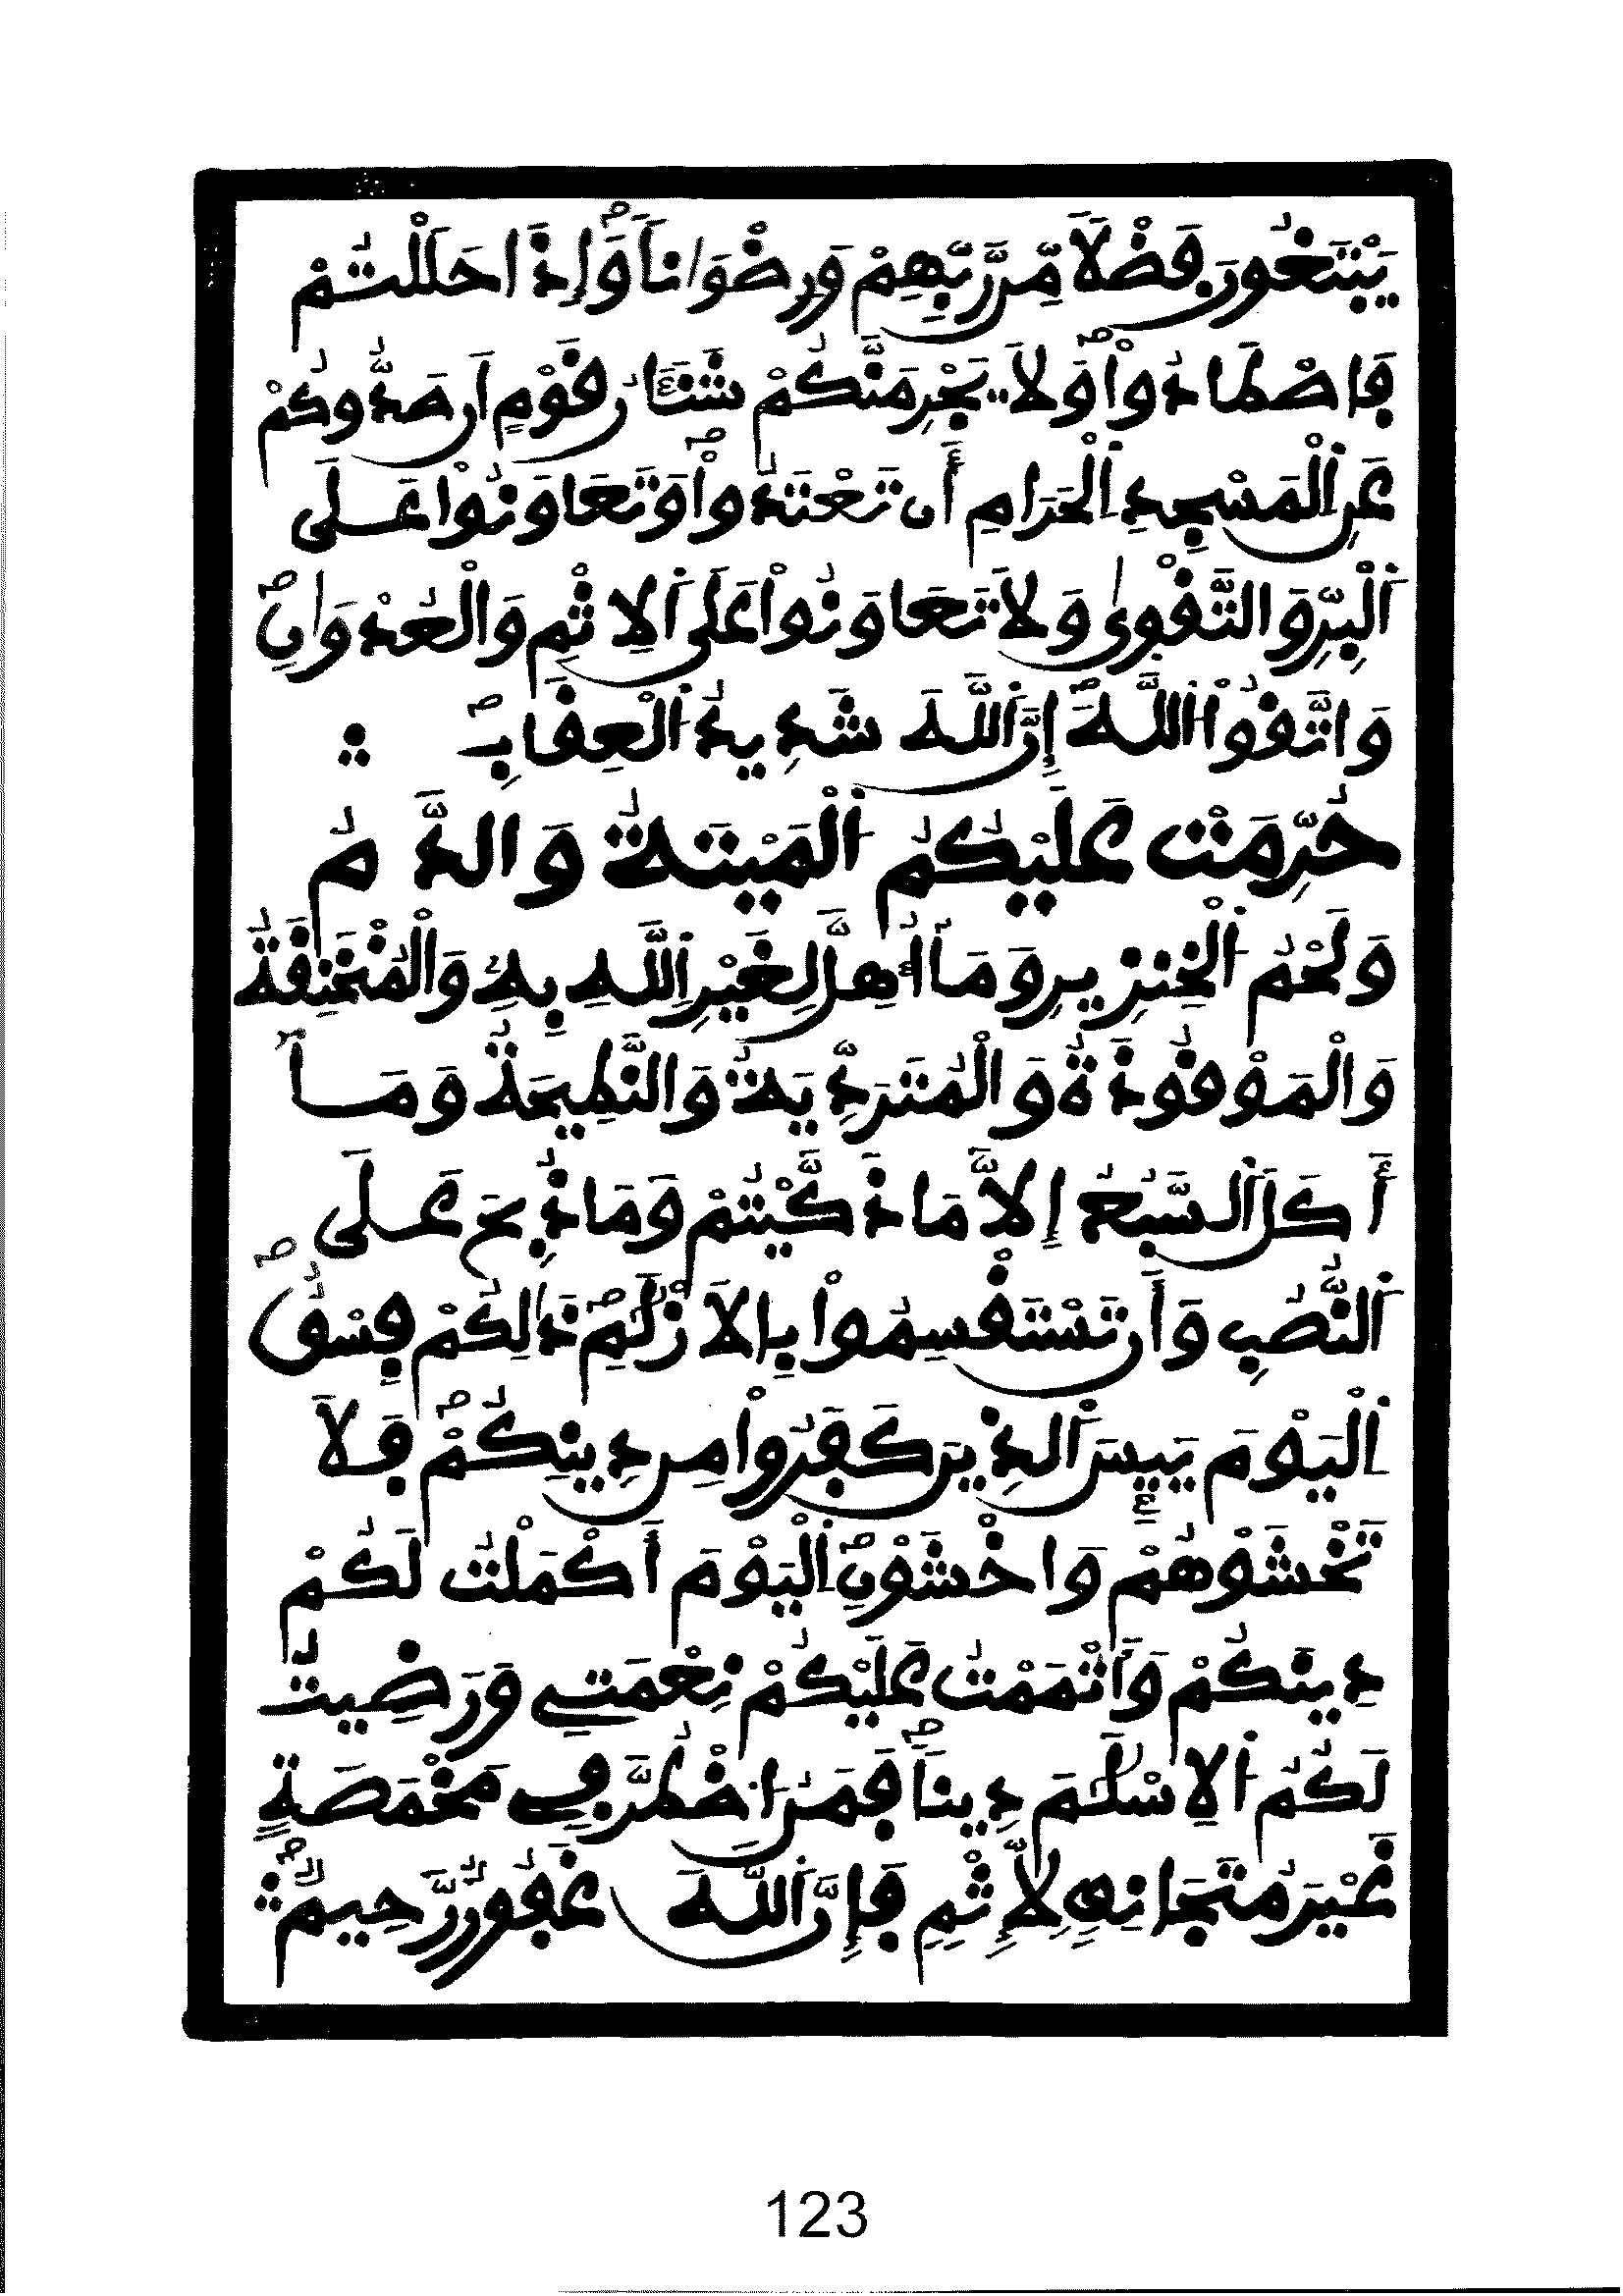 يَبْتَغُونَ فَضْلًا مِّن رَّبِّهِمْ وَرِضْوَٰنًا وَإِذَا حَلَلْتُمْ
فَاصْطَادُواْ وَلَا يَجْرِمَنَّكُمْ شَنَـَٔانُ قَوْمٍ أَن صَدُّوكُمْ
عَنِ اِلْمَسْجِدِ اِلْحَرَامِ أَن تَعْتَدُواْ وَتَعَاوَنُواْ عَلَى
اَلْبِرِّ وَالتَّقْوَىٰ وَلَا تَعَاوَنُواْ عَلَى اَلِاثْمِ وَالْعُدْوَٰنِ
وَاتَّقُواْ اُللَّهَ إِنَّ اَللَّهَ شَدِيدُ اُلْعِقَابِ
حُرِّمَتْ عَلَيْكُمُ اُلْمَيْتَةُ وَالدَّمُ
وَلَحْمُ اُلْخِنزِيرِ وَمَا أُهِلَّ لِغَيْرِ اِللَّهِ بِهِ وَالْمُنْخَنِقَةُ
وَالْمَوْقُوذَةُ وَالْمُتَرَدِّيَةُ وَالنَّطِيحَةُ وَمَا
أَكَلَ اَلسَّبُعُ إِلَّا مَا ذَكَّيْتُمْ وَمَا ذُبِحَ عَلَى
اَلنُّصُبِ وَأَن تَسْتَقْسِمُواْ بِالَازْلَٰمِ ذَٰلِكُمْ فِسْقٌ
اِلْيَوْمَ يَيِسَ اَلذِينَ كَفَرُواْ مِن دِينِكُمْ فَلَا
تَخْشَوْهُمْ وَاخْشَوْنِ اِلْيَوْمَ أَكْمَلْتُ لَكُمْ
دِينَكُمْ وَأَتْمَمْتُ عَلَيْكُمْ نِعْمَتِي وَرَضِيتُ
لَكُمُ اُلِاسْلَٰمَ دِينًا فَمَنُ اُضْطُرَّ فِي مَخْمَصَةٍ
غَيْرَ مُتَجَانِفٍ لِّإِثْمٍ فَإِنَّ اَللَّهَ غَفُورٌ رَّحِيمٌ
123